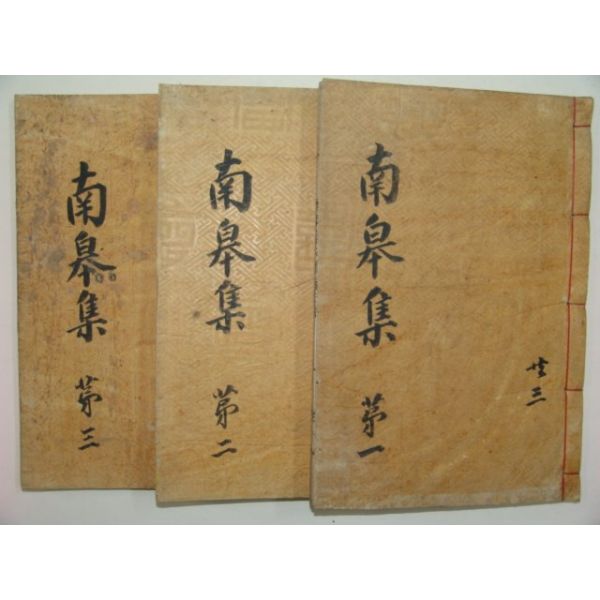 南皐集 苐一
共三
南皐集 苐二
南皐集 苐三